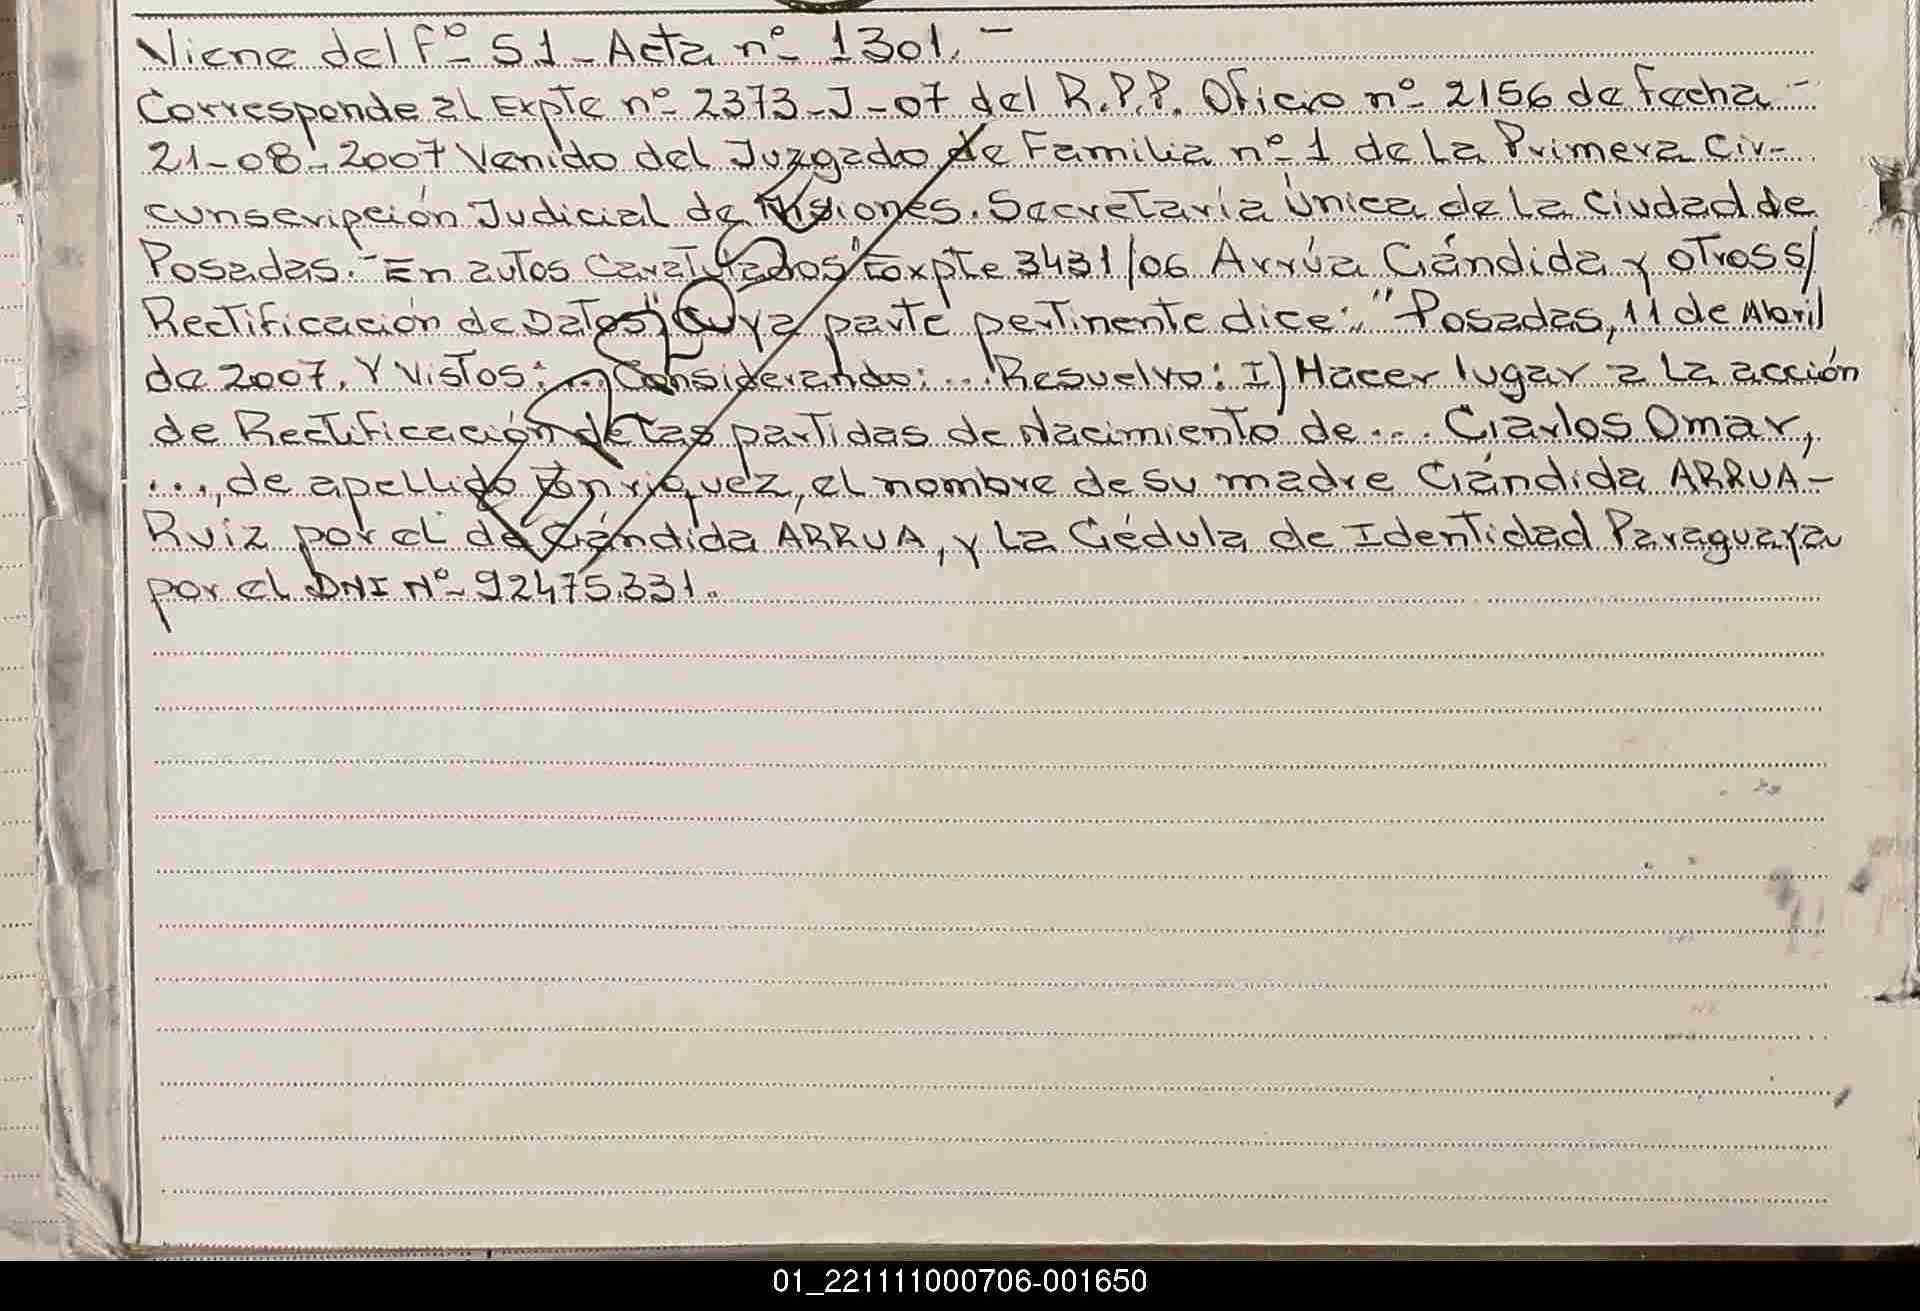 Viene del fº 51 - Acta nº 1301. -
Corresponde al Expte nº 2373-J-07 del R.P.P. Oficio nº 2156 de fecha -
21-08-2007 Venido del Juzgado de Familia nº 1 de La Primera Cir-
cunscripción Judicial de Misiones. Secretaría Única de La Ciudad de
Posadas. - En autos Caratulados "Expte 3431/06 Arrúa Cándida y otros s/
Rectificación de Datos", Cuya parte pertinente dice: "Posadas, 11 de Abril
de 2007. Y Vistos: ... Considerando: ... Resuelvo: I) Hacer lugar a La acción
de Rectificación de las partidas de Nacimiento de ... Carlos Omar,
..., de apellido Enriquez, el nombre de su madre Cándida ARRUA-
Ruiz por el de Cándida ARRUA, y La Cédula de Identidad Paraguaya
por el DNI Nº 92475.331.
01_221111000706-001650